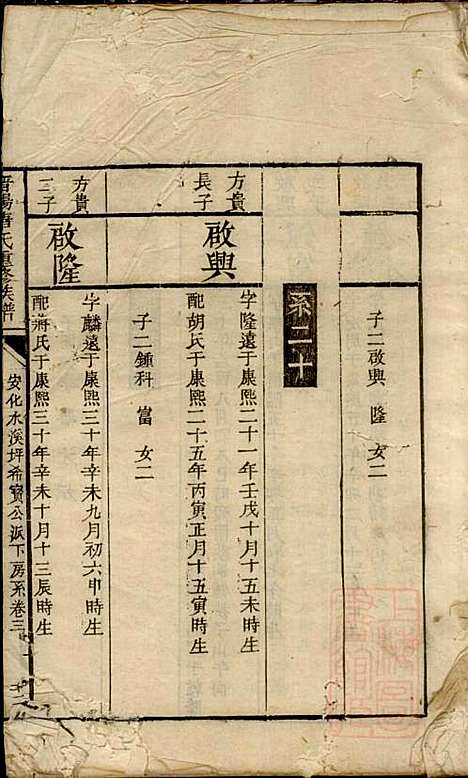 子二啟興 隆 女二
系二十
方貴長子
啟興
字隆遠于康熙二十一年壬戌十月十五未時生
配胡氏于康熙二十五年丙寅正月十五寅時生
子二鍾科 富 女二
方貴三子
啟隆
字麟遠于康熙三十年辛未九月初六申時生
配蔣氏于康熙三十年辛未十月十三辰時生
晋陽唐氏重修族譜
安化水溪坪希寶公派下房系卷三